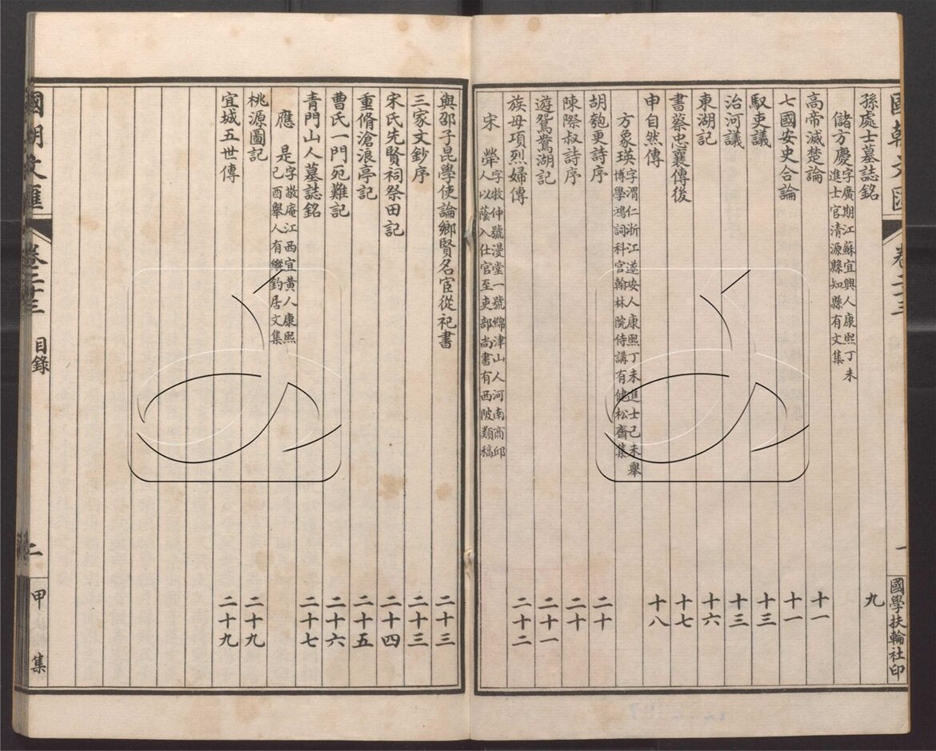 國朝文匯 卷二十三 一 國學扶輪社印
孫處士墓誌銘 九
儲方慶 字廣期江蘇宜興人康熙丁未
進士官清源縣知縣有文集
高帝滅楚論 十一
七國安史合論 十一
馭吏議 十三
治河議 十三
東湖記 十六
書蔡忠襄傳後 十七
申自然傳 十八
方象瑛 字渭仁浙江遂安人康熙丁未進士己未舉
博學鴻詞科官翰林院侍講有健松齋集
胡匏更詩序 二十
陳際叔詩序 二十
遊鴛鴦湖記 二十一
族母項烈婦傳 二十二
宋犖 字牧仲號漫堂一號綿津山人河南商邱
人以蔭入仕官至吏部尚書有西陂類稿
與邵子昆學使論鄉賢名宦從祀書 二十三
三家文鈔序 二十三
宋氏先賢祠祭田記 二十四
重脩滄浪亭記 二十五
曹氏一門死難記 二十六
青門山人墓誌銘 二十七
應是 字敬庵江西宜黃人康熙
己酉舉人有縱釣居文集
桃源圖記 二十九
宜城五世傳 二十九
國朝文匯 卷二十三 目錄 二 甲集